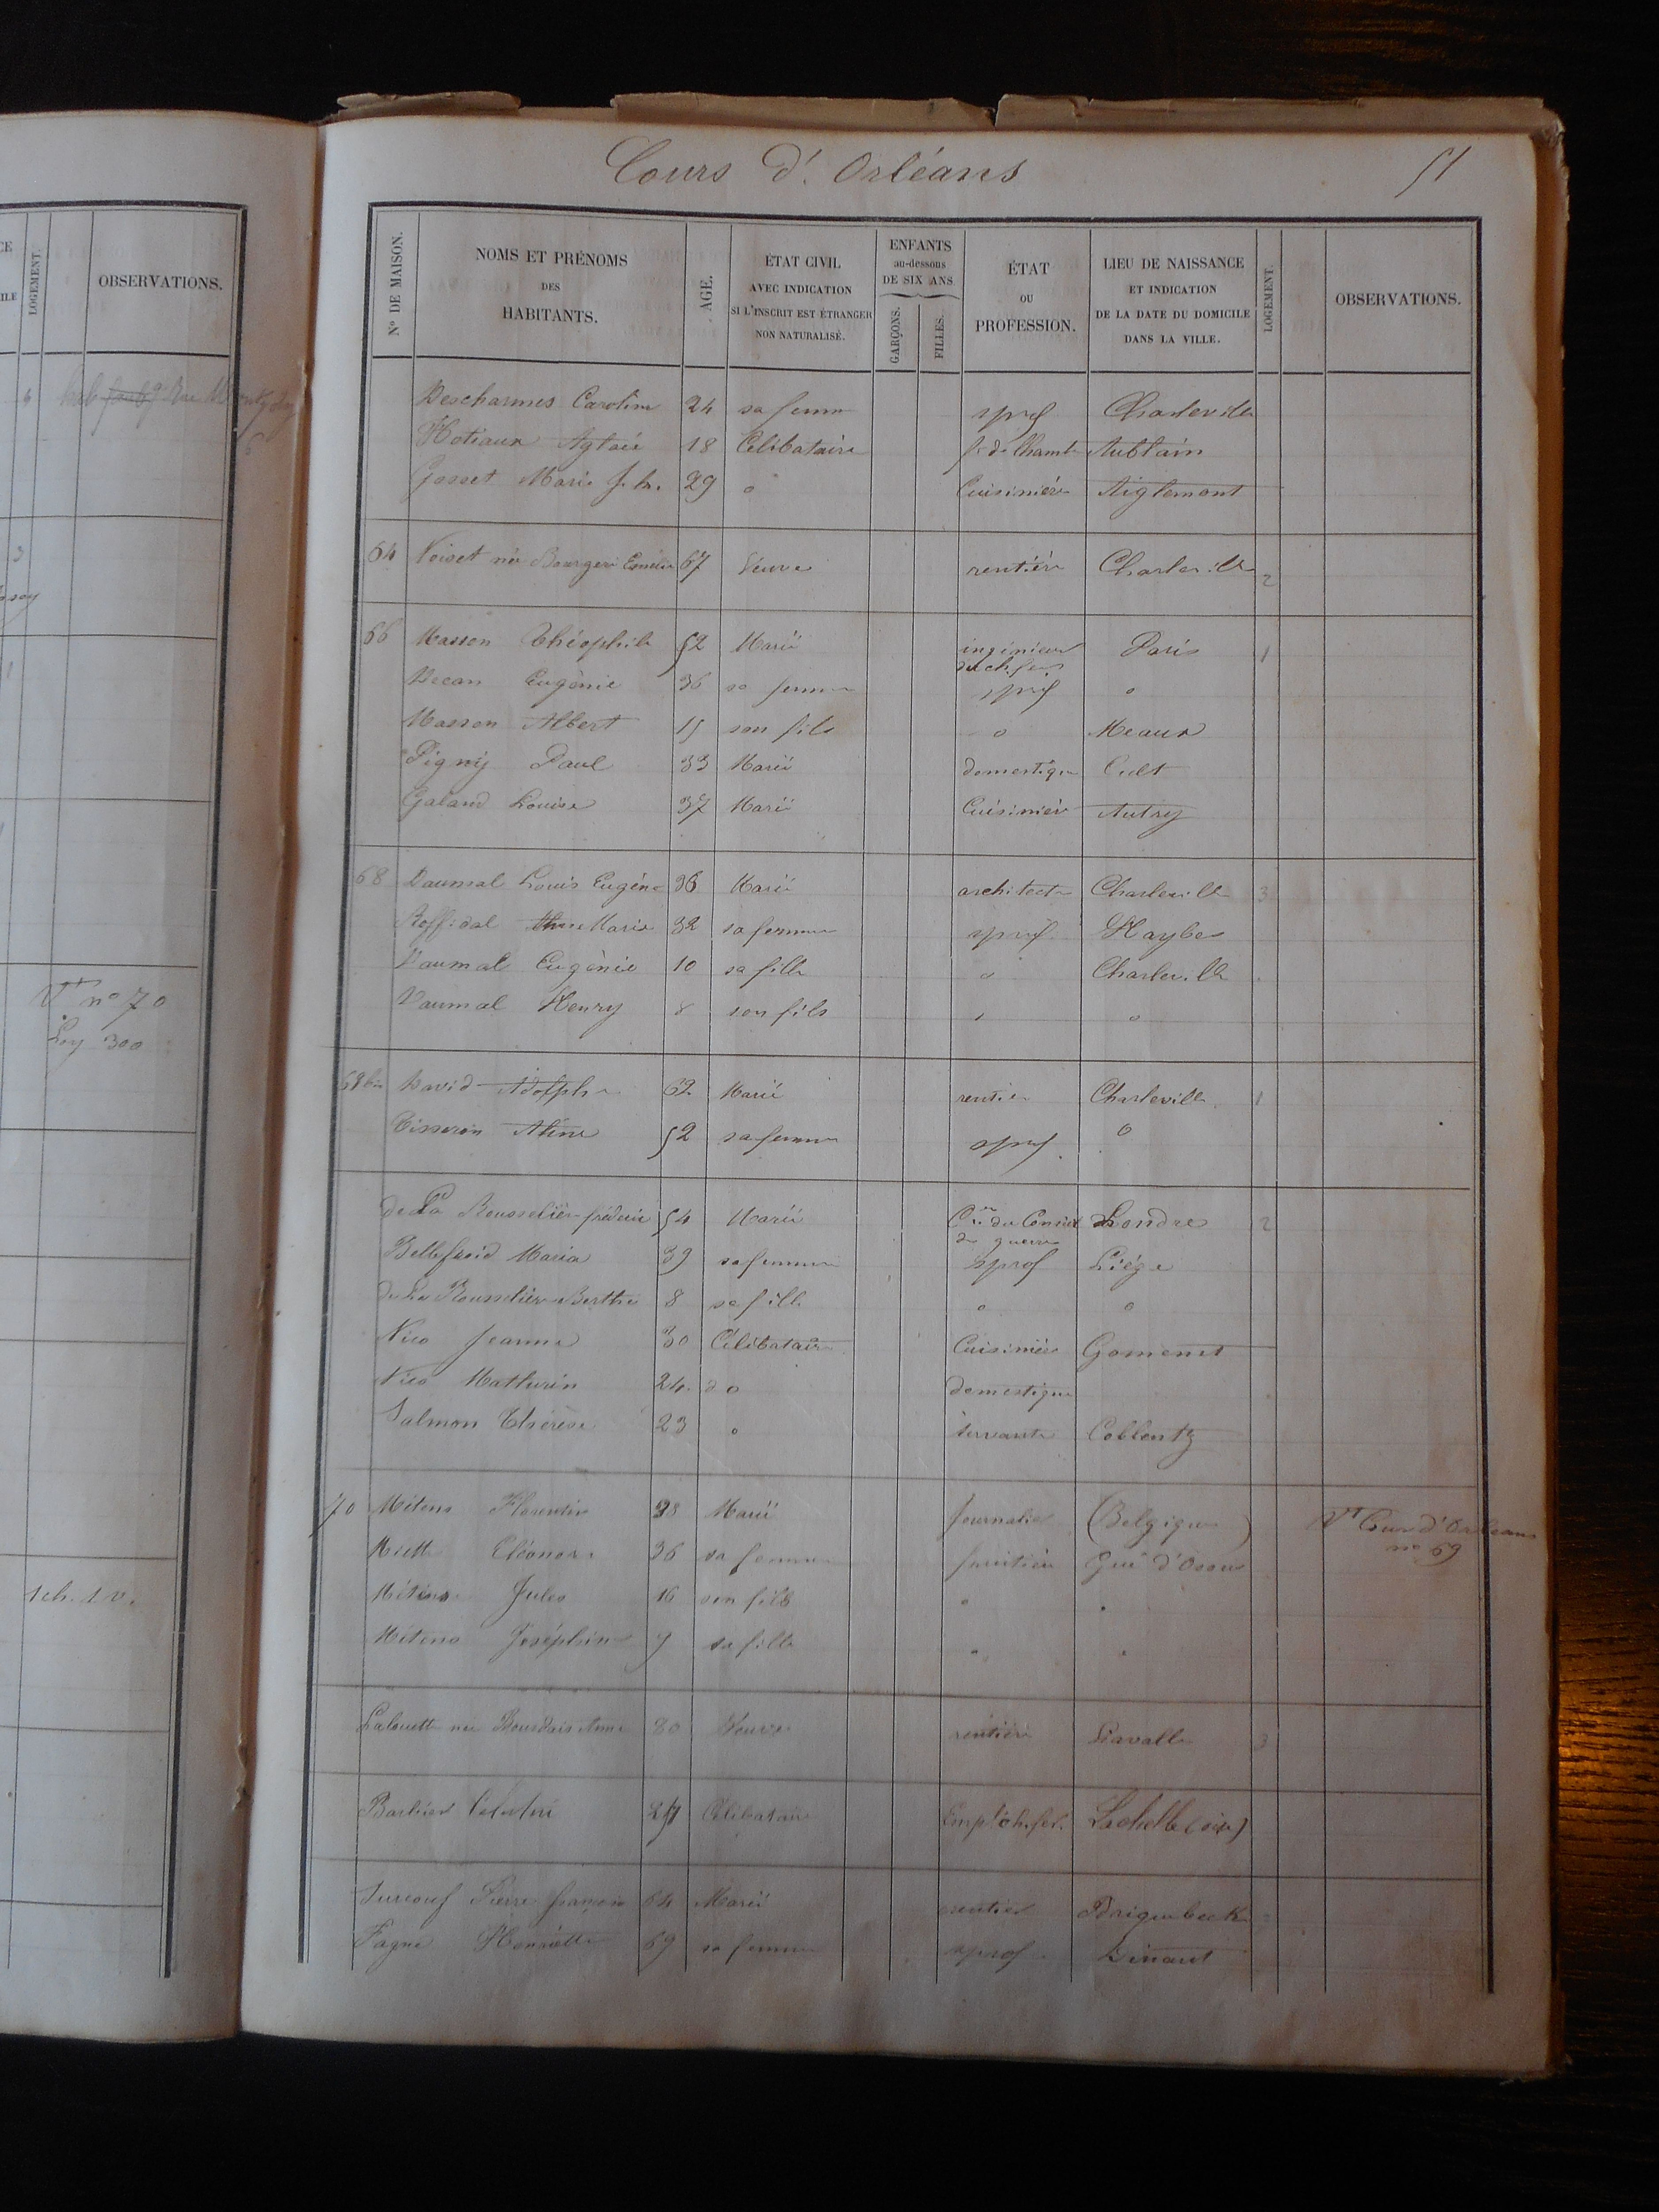 CE
ILE
LOGEMENT.
OBSERVATIONS.
6
3
1
Vt no 70
Loy 300
1ch. 1 v.
Cours d'Orléans
51
No DE MAISON.
NOMS ET PRÉNOMS
DES
HABITANTS.
AGE.
ÉTAT CIVIL
AVEC INDICATION
SI L'INSCRIT EST ÉTRANGER
NON NATURALISÉ.
ENFANTS
au-dessous
DE SIX ANS
GARÇONS.
FILLES.
ÉTAT
OU
PROFESSION.
LIEU DE NAISSANCE
ET INDICATION
DE LA DATE DU DOMICILE
DANS LA VILLE.
LOGEMENT.
OBSERVATIONS.
Descharmes Caroline 24 sa femme sprof Charleville
Hotiaux Aglaée 18 Célibataire f de Chamb Aublain
Gosset Marie J. h. 29 o Cuisinière Aiglemont
64 Voiset née Emélie 67 Veuve rentière Charleville 2
66 Masson Théophile 52 Marié ingénieur Paris 1
du ch. fer
Decan Eugénie 36 sa femme sprof o
Masson Albert 15 son fils o Meaux
Pigny Paul 33 Marié domestique Cult
Galand Louise 37 Marié Cuisinièr Autry
68 Daumal Louis Eugène 36 Marié architecte Charleville 3
Roffidal Marie 32 sa femme sprof. Haybes
Daumal Eugénie 10 sa fille o Charleville
Daumal Henry 8 son fils o
68 bis David Adolphe 62 Marié rentier Charleville 1
Tisseron Aline 52 sa femme sprof. o
de La Rousselière frédéric 54 Marié Cre du Conseil Londre 2
de guerre
Bellefroid Maria 39 sa femme sprof Liége
de La Rousselière Berthe 8 sa fille o o
Nico Jeanne 30 Célibataire Cuisinière Gomenet
Nico Mathurin 24. do domestique
Salmon Thérèse 23 o servante Coblentz
70 Mitens Florentin 38 Marié Journalier (Belgique) Vt Cour d'Orleans
no 69
Miette Eléonore 36 sa femme fruitière Gué d'Ossus
Mitens Jules 16 son fils
Mitens Joséphine 7 sa fille
Lalouette née Bourdais Anne 80 Veuve rentière Lavalle 3
Barbier Célibataire Emp ch. fer. Lachelle (oise)
Surcouf Pierre françois 64 Marié rentier Briquebeck
Fagne Henriette 69 sa femme sprof Dinant